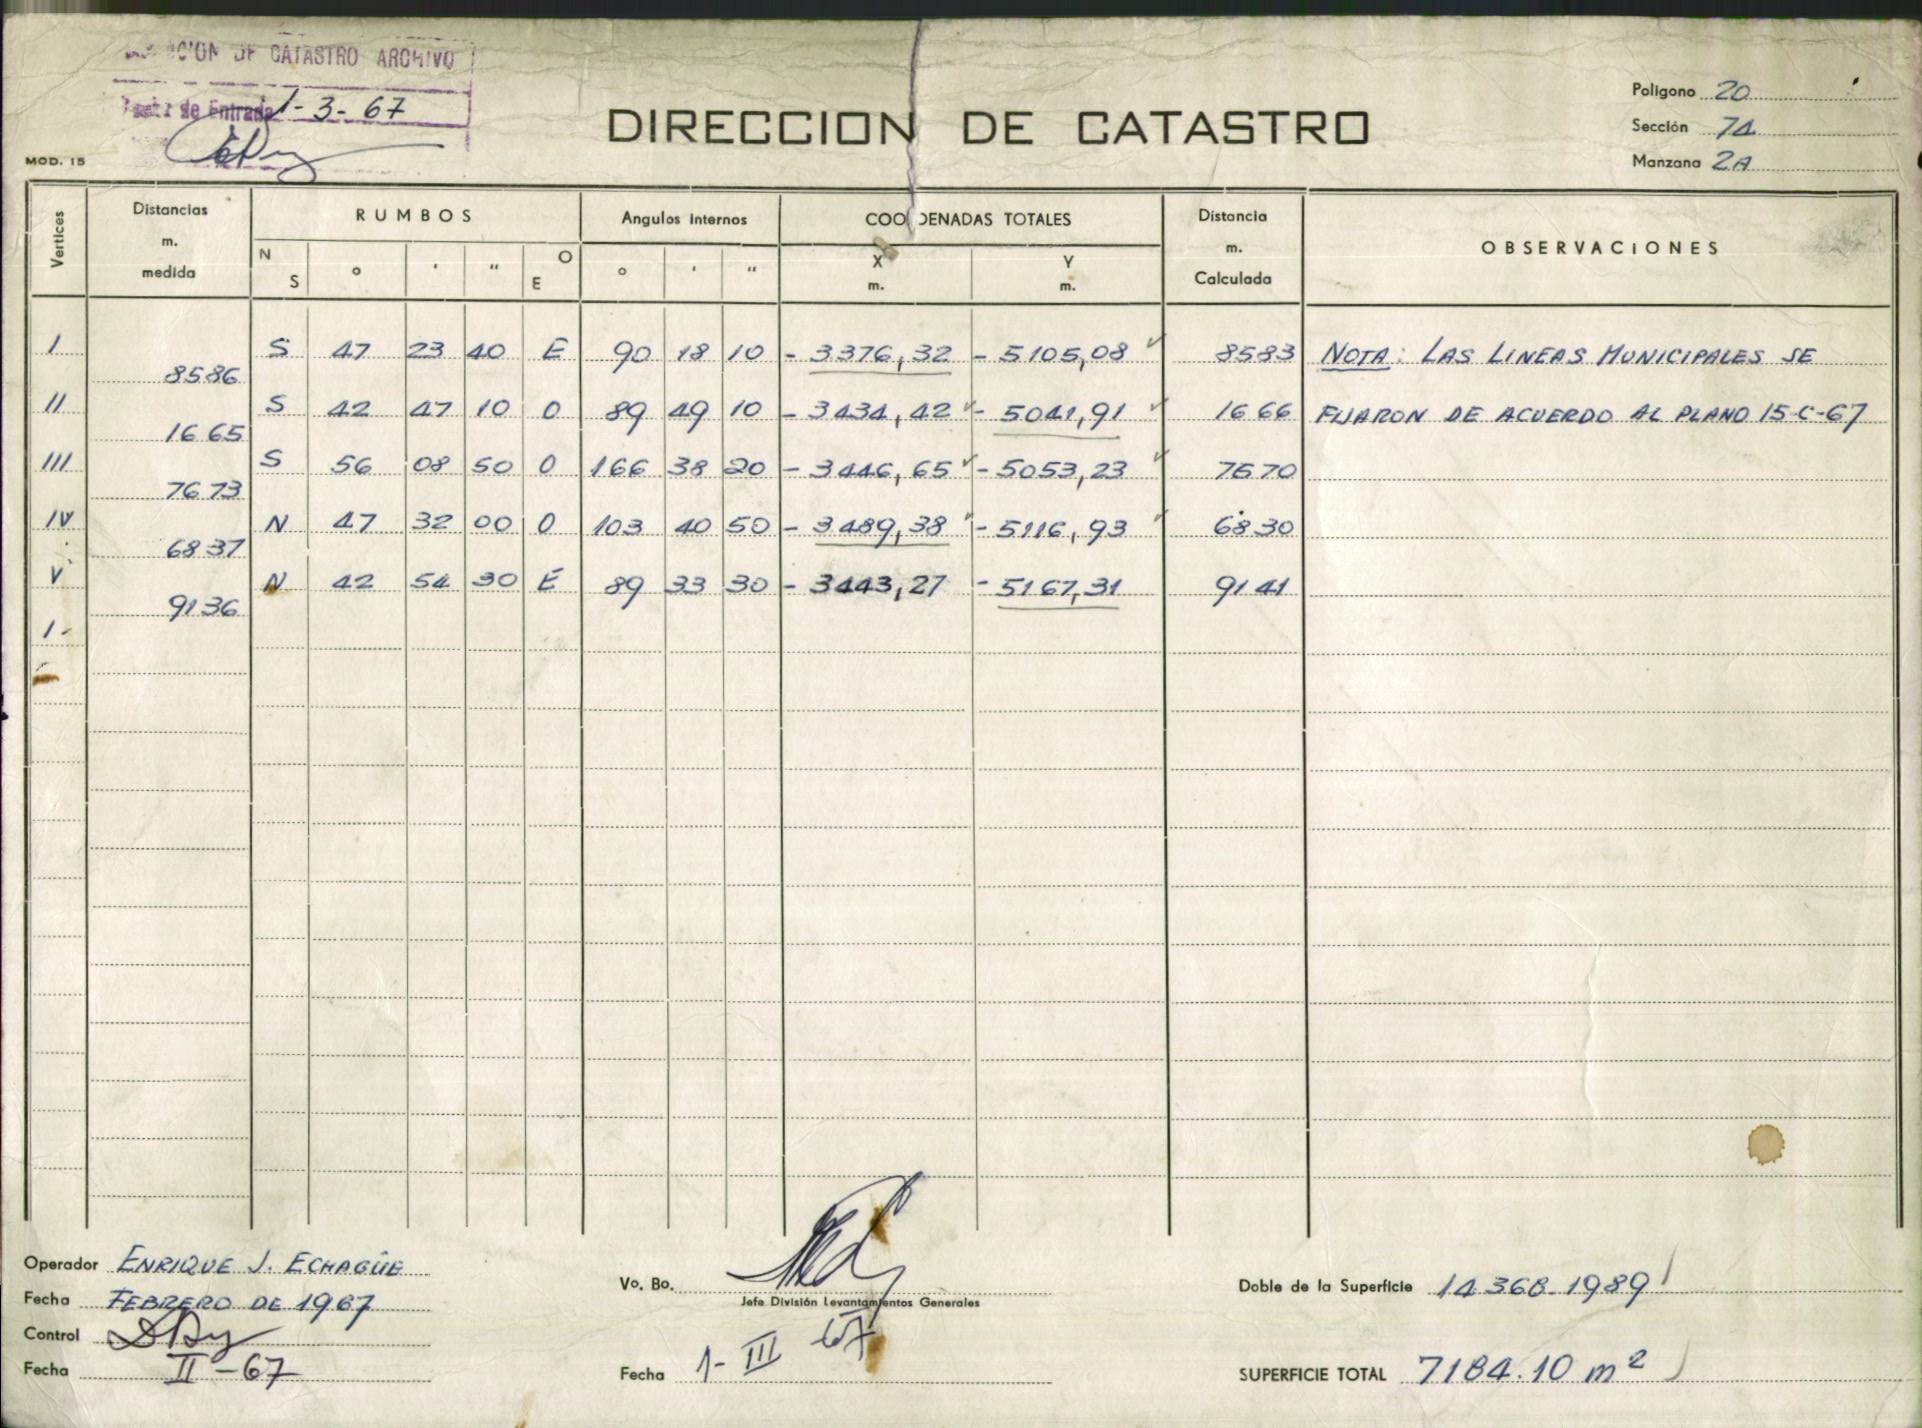 DE CATASTRO ARCHIVO
de Entrada 1-3-67
DIRECCION DE CATASTRO
Polígono 20
Sección 7A
Manzana 2A
MOD. 15
Vertices
Distancias m. medida
RUMBOS
Angulos internos
COORDENADAS TOTALES
Distancia m. Calculada
OBSERVACIONES
N S ° ' " O E ° ' " X m. Y m.
I S 47 23 40 E 90 18 10 - 3376,32 - 5105,08 8583 NOTA: LAS LINEAS MUNICIPALES SE
8586
II S 42 47 10 O 89 49 10 - 3434,42 - 5041,91 1666 FIJARON DE ACUERDO AL PLANO 15-C-67
1665
III S 56 08 50 O 166 38 20 - 3446,65 - 5053,23 7670
7673
IV N 47 32 00 O 103 40 50 - 3489,38 - 5116,93 6830
6837
V N 42 54 30 E 89 33 30 - 3443,27 - 5167,31 9141
9136
I -
Operador ENRIQUE J. ECHAGÜE
Fecha FEBRERO DE 1967
Control
Fecha II-67
Vo. Bo.
Jefe División Levantamientos Generales
Fecha 1- III 67
Doble de la Superficie 14368.1989
SUPERFICIE TOTAL 7184.10 m²